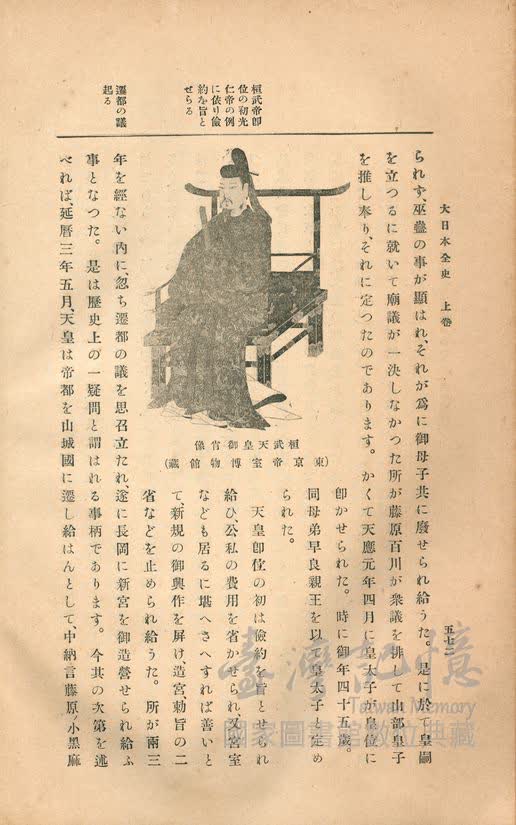 大日本全史　上卷
五七二
桓武帝卽
位の初光
仁帝の例
に依り儉
約を旨と
せらる
遷都の議
起る
られず、巫蠱の事が顯はれ、それが爲に御母子共に廢せられ給うた。是に於て皇嗣
を立つるに就いて廟議が一決しなかつた所が藤原百川が衆議を排して山部皇子
を推し奉り、それに定つたのであります。かくて天應元年四月に皇太子が皇位に
卽かせられた。時に御年四十五歲。
同母弟早良親王を以て皇太子と定め
られた。
天皇卽位の初は儉約を旨とせられ
給ひ公私の費用を省かせられ又宮室
なども居るに堪へさへすれば善いと
て新規の御興作を屛け、造宮、勅旨の二
省などを止められ給うた。所が兩三
桓武天皇御肖像
(東京帝室博物館藏)
年を經ない內に、忽ち遷都の議を思召立たれ、遂に長岡に新宮を御造營せられ給ふ
事となつた。是は歷史上の一疑問と謂はれる事柄であります。今其の次第を述
べれば、延曆三年五月、天皇は帝都を山城國に遷し給はんとして、中納言藤原ノ小黑麻
臺灣記憶
Taiwan Memory
國家圖書館數位典藏